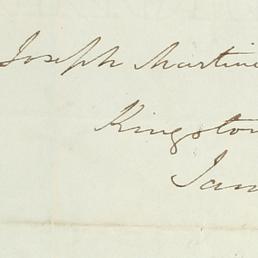 Joseph Martine
Kingston
Jam